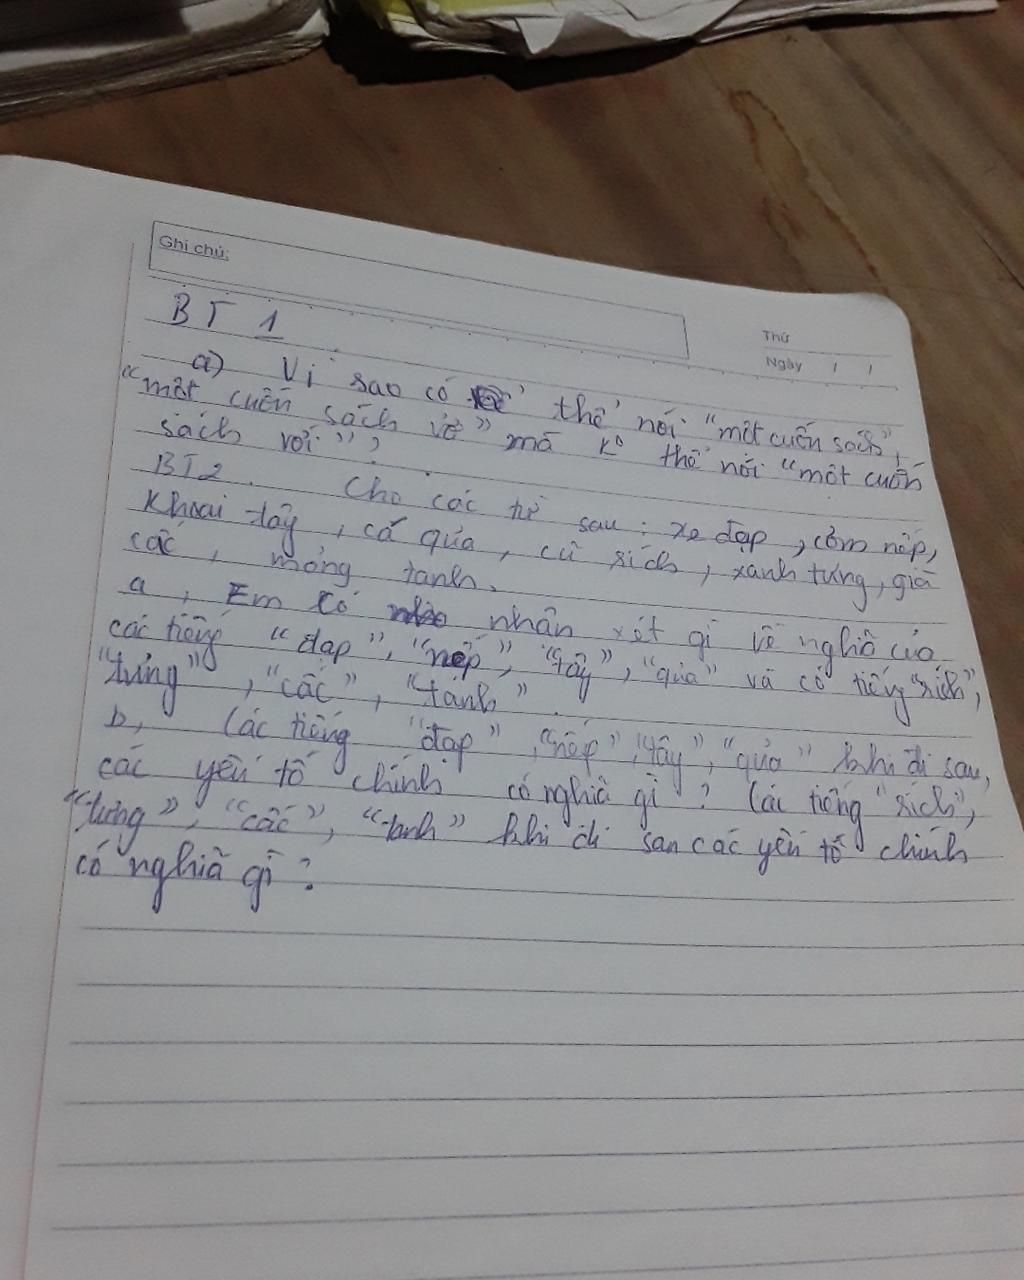 Ghi chú:
Thứ
Ngày / /
BT 1
a) Vì sao có thể nói "một cuốn sách",
"một cuốn sách vở" mà k° thể nói "một cuốn
sách với"?
BT2. Cho các từ sau: xe đạp, cơm nếp,
Khoai tây, cá quả, cũ rích, xanh tưng, già
cấc, mỏng tanh.
a, Em có nhận xét gì về nghĩa của
các tiếng "đạp", "nếp", "tây", "quả" và có tiếng "rích",
"tưng", "cấc", "tanh".
b, Các tiếng "đạp", "nếp", "tây", "quả" khi đi sau,
các yếu tố chính có nghĩa gì? Các tiếng "rích",
"tưng", "cấc", "tanh" khi đi sau các yếu tố chính
có nghĩa gì?